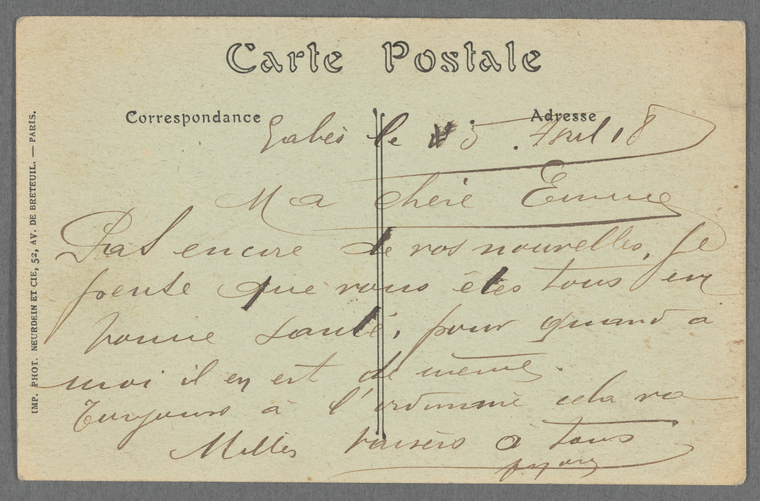 Carte Postale
Correspondance
Adresse
Gabès le 5 Avril 18
Ma chère Emma
Pas encore de vos nouvelles, je
pense que vous êtes tous en
bonne santé, pour quand à
moi il en est de même.
Toujours à l'ordinaire cela va
Milles baisers à tous
IMP. PHOT. NEURDEIN ET CIE, 52, AV. DE BRETEUIL. — PARIS.